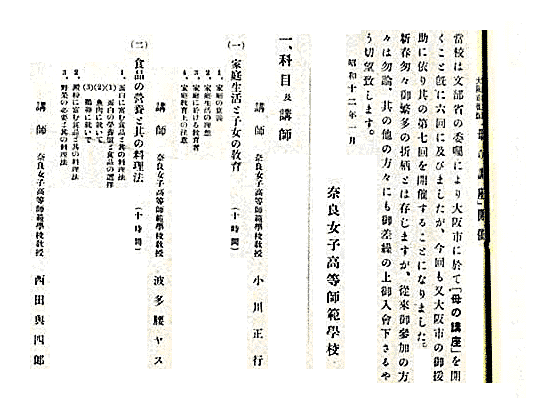 當校は文部省の委囑により大阪市に於て「母の講座」を開
くこと既に六回に及びましたが、今回も又大阪市の御援
助に依り其の第七回を開催することになりました。
新春匆々御繁多の折柄とは存じますが、從來御參加の方
々は勿論、其の他の方々にも御差繰の上御入會下さるや
う切望致します。
昭和十二年一月
奈良女子高等師範學校
一、科目及講師
(一) 家庭生活と子女の敎育 (十時間)
1、家庭の意義
2、家庭生活の理想
3、家庭に於ける敎育者
4、家庭敎育上の注意
講師 奈良女子高等師範學校敎授 小川正行
(二) 食品の營養と其の料理法 (十時間)
1、蛋白に富む食品と其の料理法
(1) 蛋白の營養價と食品の選擇
(2) 魚肉に就いて
(3) 鷄卵に就いて
2、澱粉に富む食品と其の料理法
3、野菜の必要と其の料理法
講師 奈良女子高等師範學校敎授 波多腰ヤス
講師 奈良女子高等師範學校敎授 西田與四郎